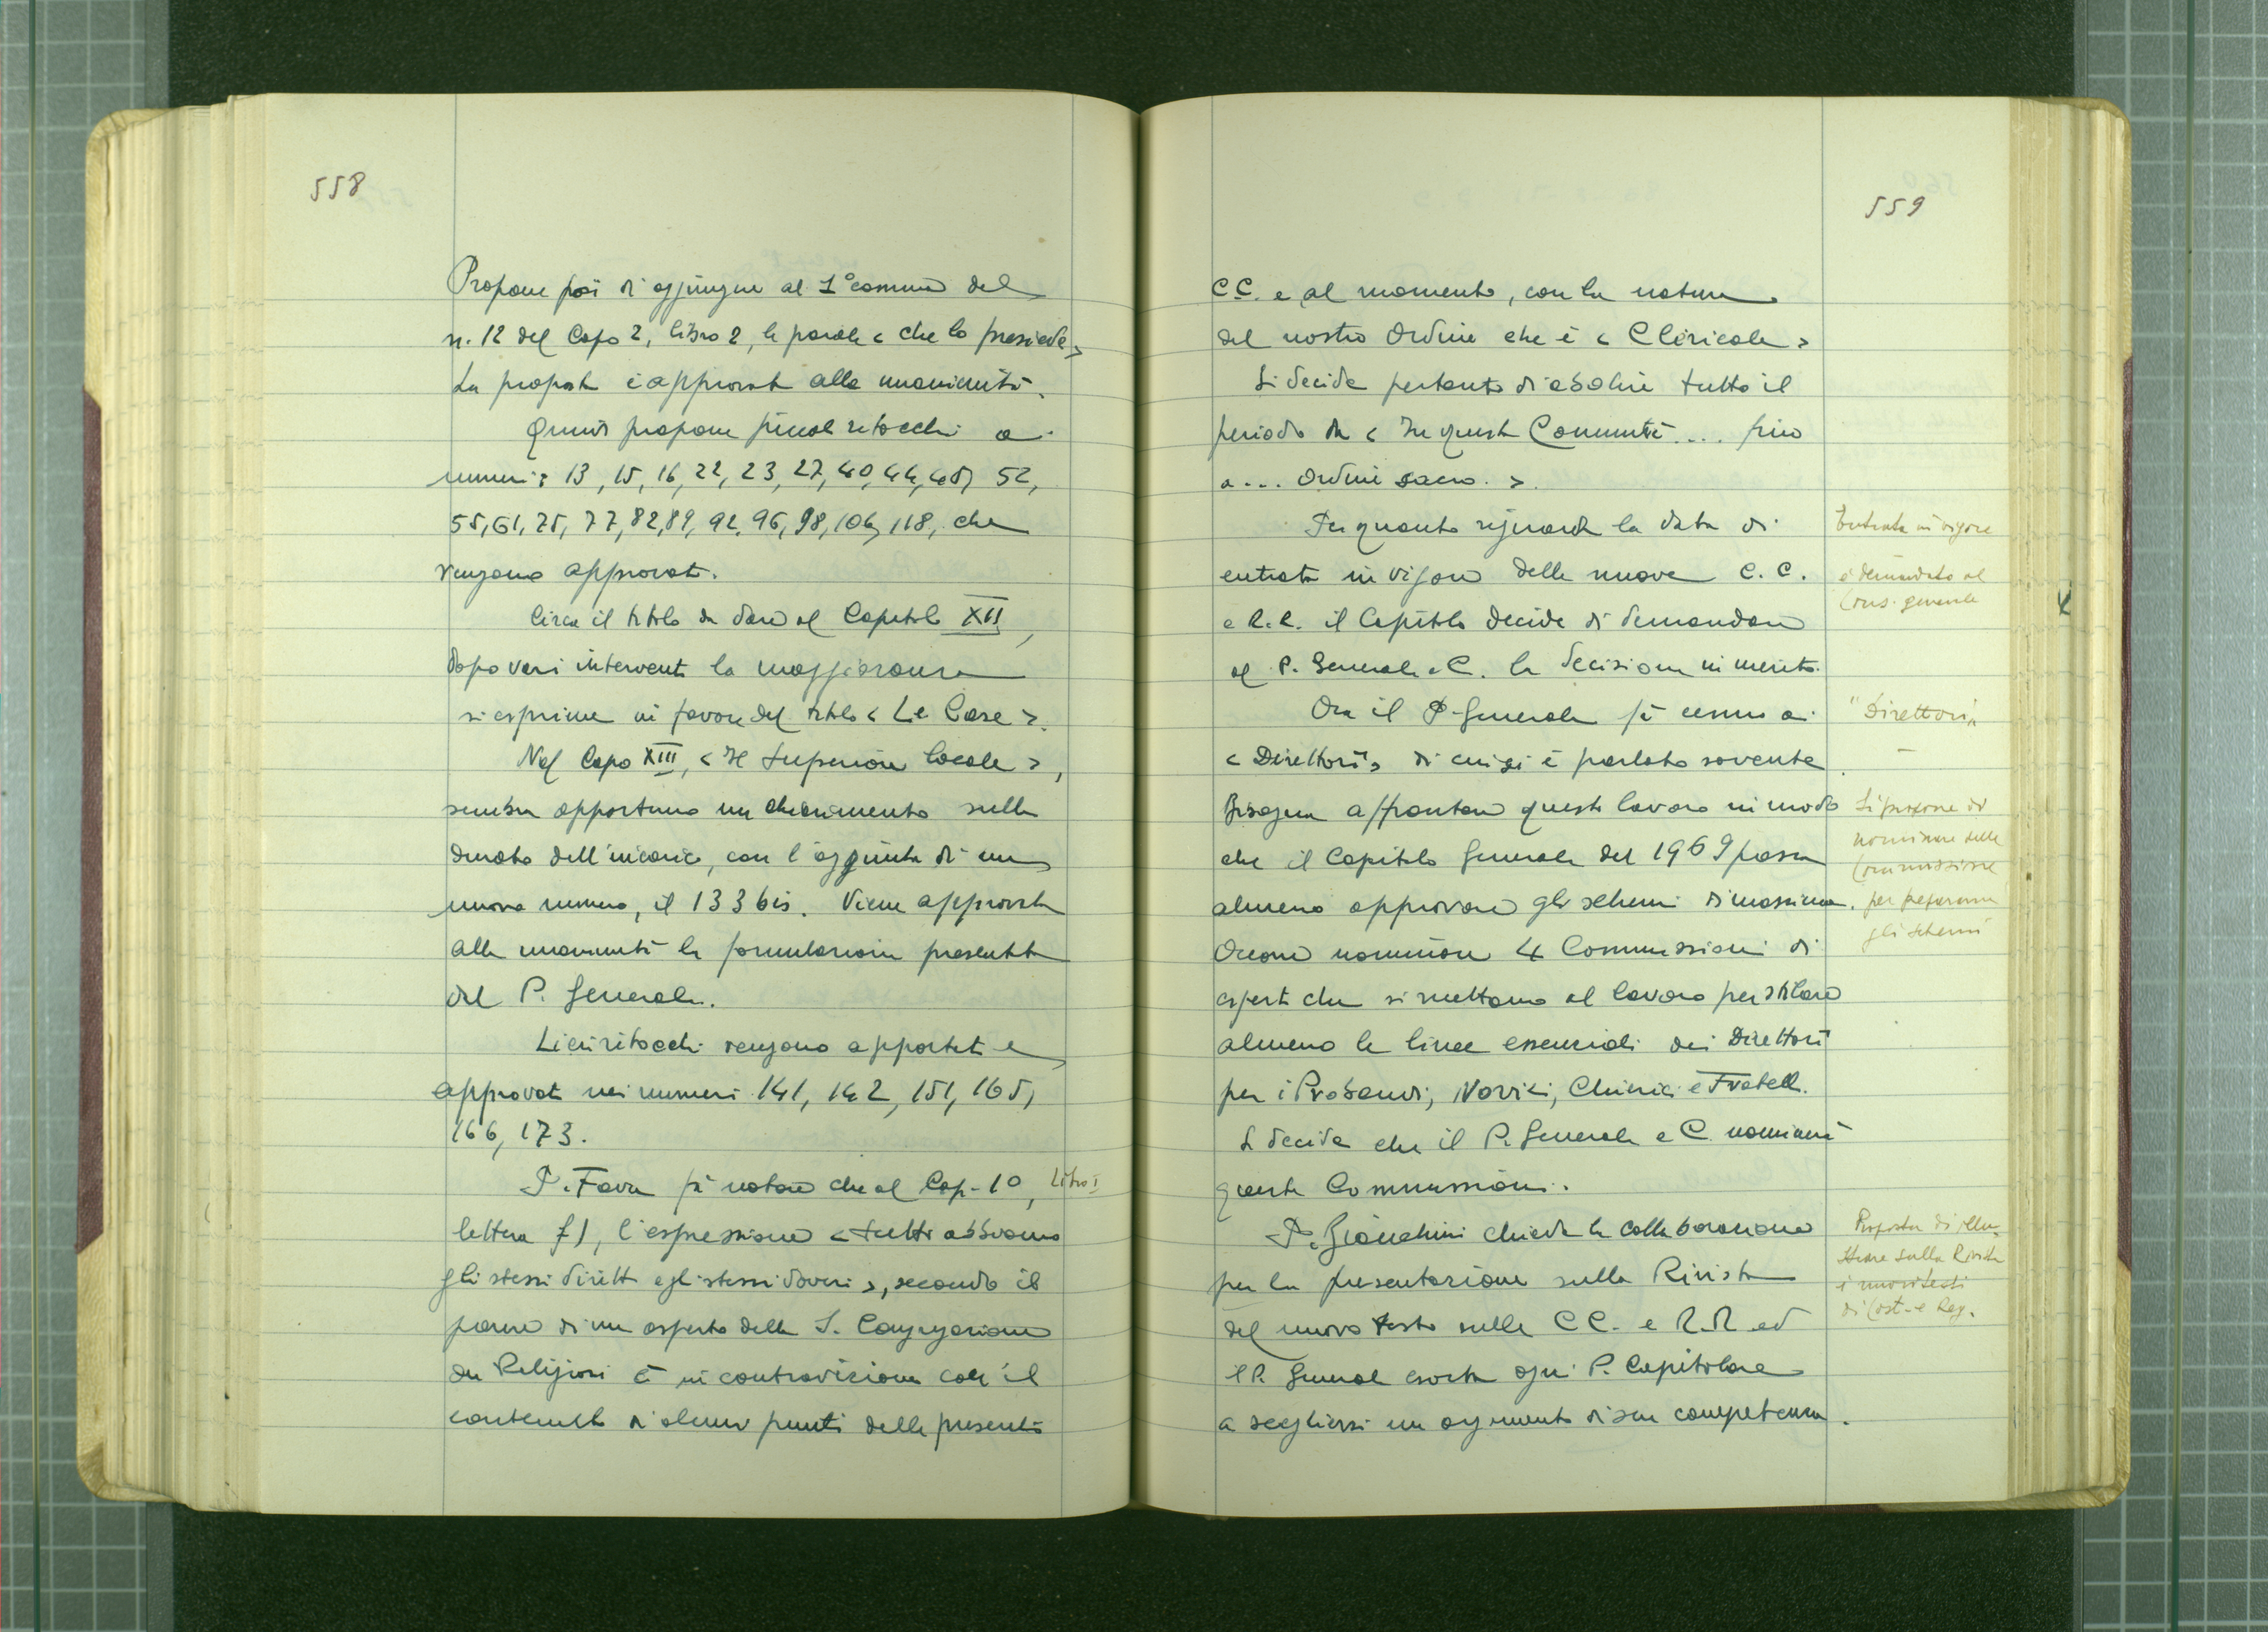 558
Propone poi di aggiungere al 1° comma del
n. 12 del Capo 2, libro 2, le parole < che lo presiede >
La proposta è approvata alla unanimità.
Quindi propone piccoli ritocchi ai
numeri: 13, 15, 16, 22, 23, 27, 40, 44, 48, 52,
55, 61, 75, 77, 82, 89, 92, 96, 98, 106, 118, che
vengono approvati.
Circa il titolo da dare al Capitolo XII,
dopo vari interventi la maggioranza
si esprime in favore del titolo < Le Case >.
Nel Capo XIII, < Il Superiore locale >,
sembra opportuno un chiarimento sulla
durata dell'incarico, con l'aggiunta di un
nuovo numero, il 133 bis. Viene approvata
alla unanimità la formulazione presentata
dal P. Generale.
Lievi ritocchi vengono apportati e
approvati nei numeri 141, 142, 151, 165,
166, 173.
P. Fava fà notare che al Cap. 10, Libro I
lettera f), l'espressione < tutti abbiamo
gli stessi diritti e gli stessi doveri >, secondo il
parere di un esperto della S. Congregazione
dei Religiosi è in contraddizione con il
contenuto di alcuni punti delle presenti
559
C.C. e al momento, con la natura
del nostro Ordine che è < Clericale >
Si decide pertanto di abolire tutto il
periodo da < In questa Comunità .... fino
a ... Ordine sacro. >.
Per quanto riguarda la data di
entrata in vigore delle nuove C. C.
e R.R. il Capitolo decide di demandare
al P. Generale e C. la decisione in merito.
Entrata in vigore
è demandato al
Cons. generale
Ora il P. Generale fà cenno ai
< Direttori > di cui si è parlato sovente.
Bisogna affrontare questo lavoro in modo
che il Capitolo Generale del 1969 possa
almeno approvare gli schemi di massima.
Occorre nominare 4 Commissioni di
esperti che si mettano al lavoro per stilare
almeno le linee essenziali dei Direttori
per i Probandi, Novizi, Chierici e Fratelli.
Si decide che il P. Generale e C. nominerà
queste Commissioni.
"Direttori"
Si propone di
nominare delle
Commissioni
per preparare
gli schemi
P. Bianchini chiede la collaborazione
per la presentazione sulla Rivista
del nuovo testo sulle CC. e R.R. ed
il P. Generale esorta ogni P. Capitolare
a scegliersi un argomento di sua competenza.
Proposta di illu-
strare sulla Rivista
i nuovi testi
di Cost. e Reg.